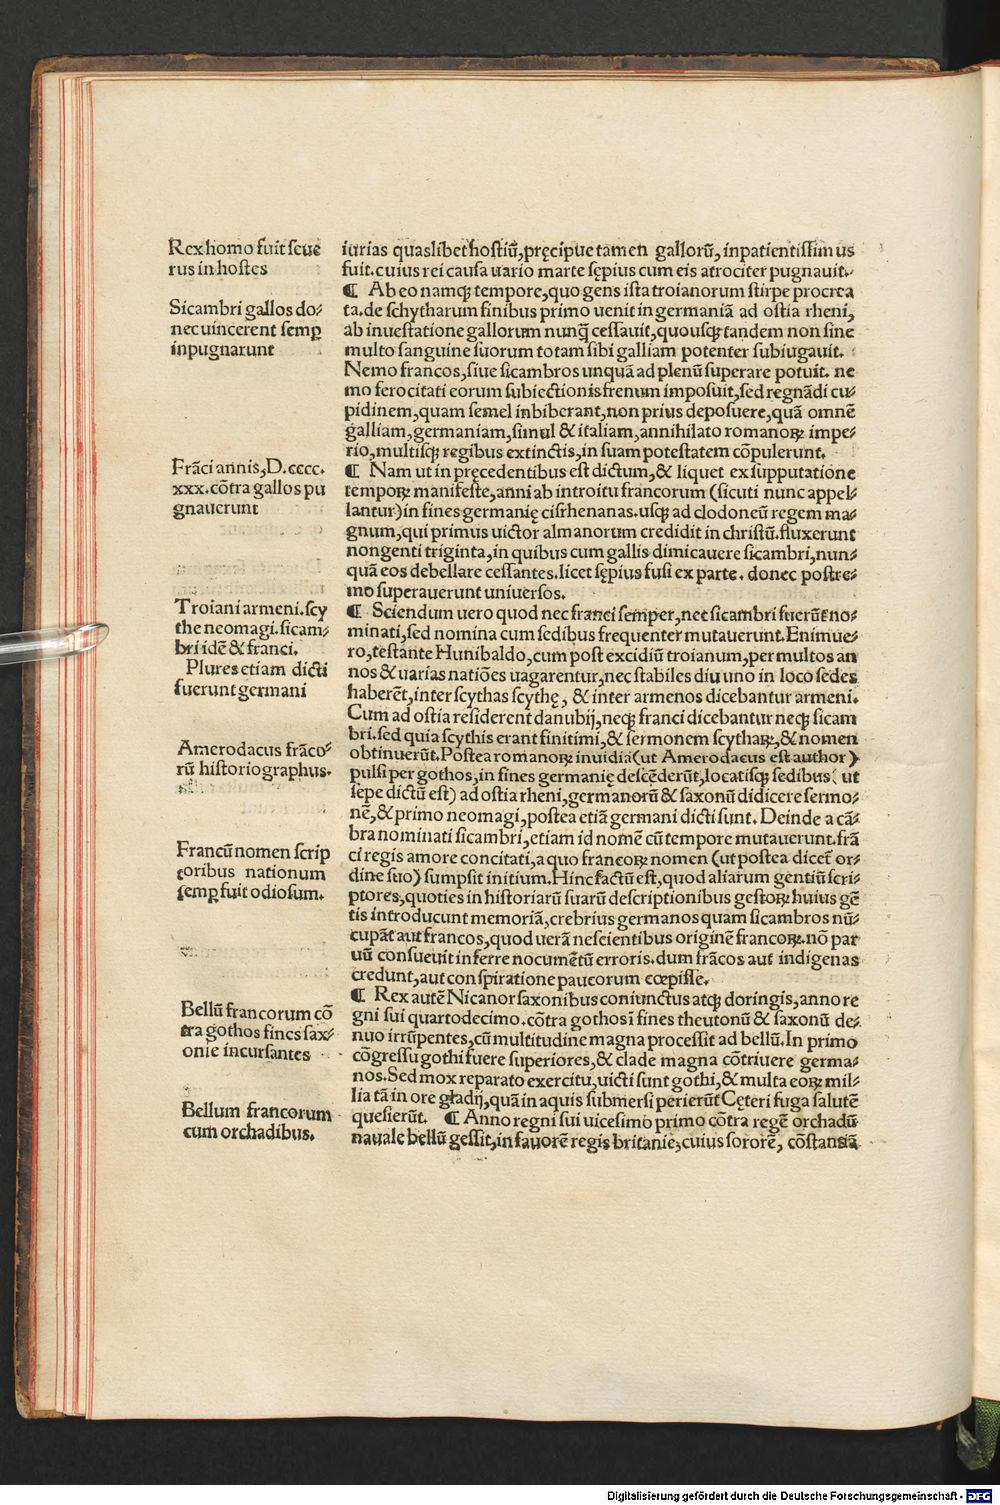 Rex homo fuit seue
rus in hostes
Sicambri gallos do-
nec uincerent semꝑ
inpugnarunt
Frāci annis, D.cccc.
xxx. cōtra gallos pu
gnauerunt
Troiani armeni. scy
the neomagi. sicam-
bri idē & franci.
Plures etiam dicti
fuerunt germani
Amerodacus frāco-
rū historiographus.
Francū nomen scrip
toribus nationum
semꝑ fuit odiosum.
Bellū francorum cō
tra gothos fines sax-
onie incursantes
Bellum francorum
cum orchadibus.
iurias quaslibet hostiū, pręcipue tamen gallorū, inpatientissimus
fuit. cuius rei causa uario marte sępius cum eis atrociter pugnauit.
¶ Ab eo namqꝫ tempore, quo gens ista troianorum stirpe procrea
ta. de schytharum finibus primo uenit in germaniā ad ostia rheni,
ab inuestatione gallorum nunq̄ cessauit, quousqꝫ tandem non sine
multo sanguine suorum totam sibi galliam potenter subiugauit.
Nemo francos, siue sicambros unquā ad plenū superare potuit. ne
mo ferocitati eorum subiectionis frenum imposuit, sed regnādi cu-
pidinem, quam semel inbiberant, non prius deposuere, quā omnē
galliam, germaniam, simul & italiam, annihilato romanoꝝ impe-
rio, multisqꝫ regibus extinctis, in suam potestatem cōpulerunt.
¶ Nam ut in pręcedentibus est dictum, & liquet ex supputatione
tempoꝝ manifeste, anni ab introitu francorum (sicuti nunc appel-
lantur) in fines germanię cisrhenanas. usqꝫ ad clodoneū regem ma-
gnum, qui primus uictor almanorum credidit in christū. fluxerunt
nongenti triginta, in quibus cum gallis dimicauere sicambri, nun-
quā eos debellare cessantes. licet sępius fusi ex parte. donec postre-
mo superauerunt uniuersos.
¶ Sciendum uero quod nec franci semper, nec sicambri fuerūt no-
minati, sed nomina cum sedibus frequenter mutauerunt. Enimue-
ro, testante Hunibaldo, cum post excidiū troianum, per multos an
nos & uarias natiōes uagarentur, nec stabiles diu uno in loco sedes
haberēt, inter scythas scythę, & inter armenos dicebantur armeni.
Cum ad ostia residerent danubij, neqꝫ franci dicebantur neqꝫ sicam
bri. sed quia scythis erant finitimi, & sermonem scythaꝝ, & nomen
obtinuerūt. Postea romanoꝝ inuidia (ut Amerodacus est author)
pulsi per gothos, in fines germanię descēderūt, locatisqꝫ sedibus (ut
sepe dictū est) ad ostia rheni, germanorū & saxonū didicere sermo-
nē, & primo neomagi, postea etiā germani dicti sunt. Deinde a cā-
bra nominati sicambri, etiam id nomē cū tempore mutauerunt. frā
ci regis amore concitati, a quo francoꝝ nomen (ut postea dicet̄ or-
dine suo) sumpsit initium. Hinc factū est, quod aliarum gentiū scri-
ptores, quoties in historiarū suarū descriptionibus gestoꝝ huius gē
tis introducunt memoriā, crebrius germanos quam sicambros nū-
cupāt aut francos, quod uerā nescientibus originē francoꝝ. nō par
uū consueuit inferre nocumētū erroris. dum frācos aut indigenas
credunt, aut conspiratione paucorum cœpisse.
¶ Rex autē Nicanor saxonibus coniunctus atqꝫ doringis, anno re
gni sui quartodecimo. cōtra gothos ī fines theutonū & saxonū de-
nuo irrūpentes, cū multitudine magna processit ad bellū. In primo
cōgressu gothi fuere superiores, & clade magna cōtriuere germa-
nos. Sed mox reparato exercitu, uicti sunt gothi, & multa eoꝝ mil-
lia tā in ore gładij, quā in aquis submersi perierūt Cęteri fuga salutē
quesierūt. ¶ Anno regni sui uicesimo primo cōtra regē orchadū
nauale bellū gessit, in fauorē regis britanie, cuius sororē, cōstantiā
Digitalisierung gefördert durch die Deutsche Forschungsgemeinschaft - DFG